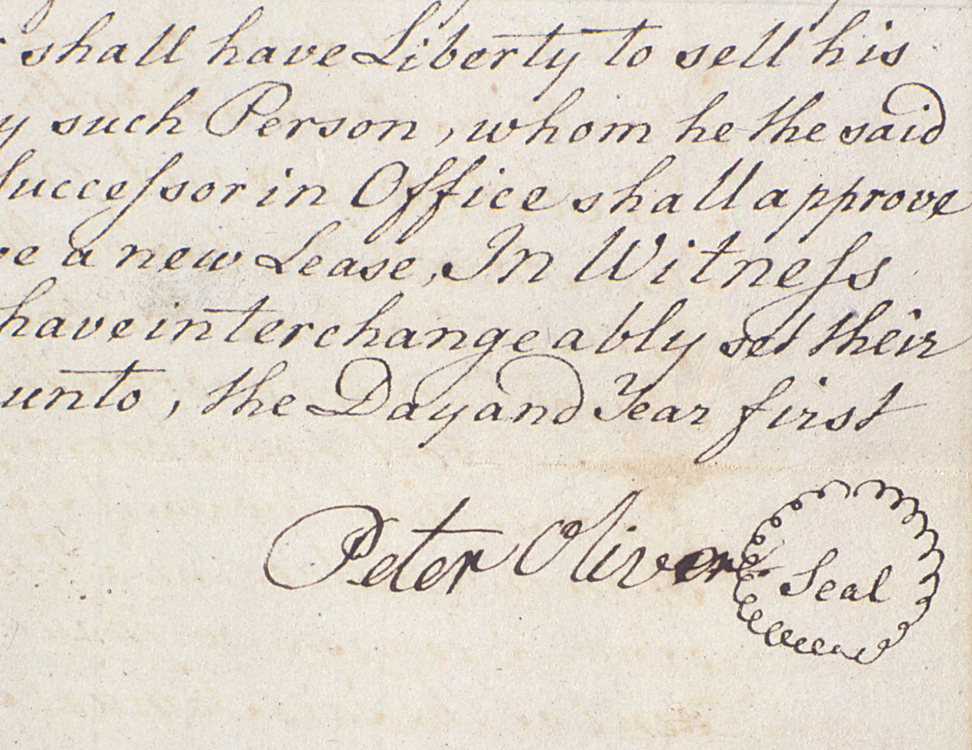 shall have Liberty to sell his
y such Person, whom he the said
Succeſsor in Office shall approve
ve a new Lease, In Witneſs
have interchangeably set their
unto, the Day and Year first
Peter Oliver Seal